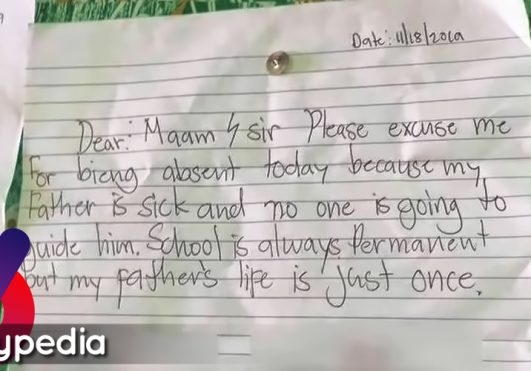 Date: 11/18/2019
Dear: Maam & sir Please excuse me
For bieng abasent today because my
Father is sick and no one is going to
guide him. School is always Permanent
but my father's life is just once.
ypedia